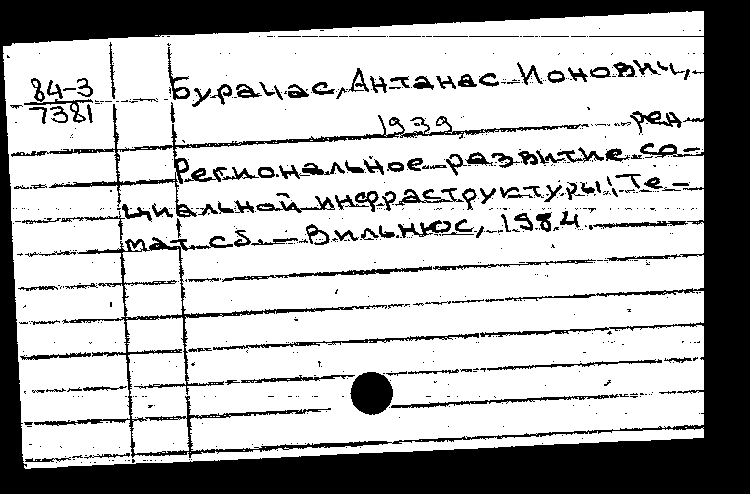 84-3
7381
Бурачас, Антанас Ионович,
1939 ред.
Региональное развитие со-
циальной инфраструктуры: Те-
мат. сб. – Вильнюс, 1984.